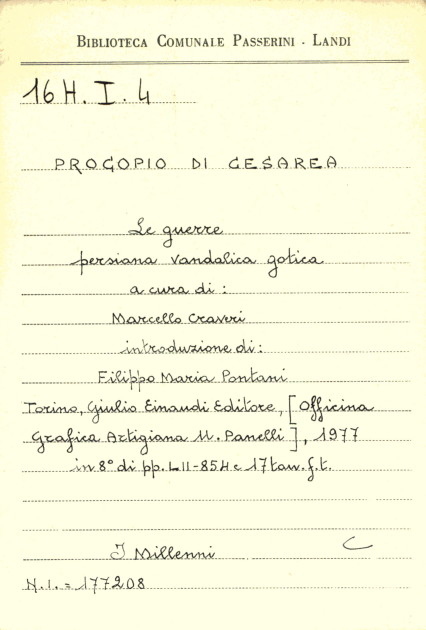 BIBLIOTECA COMUNALE PASSERINI - LANDI
16 H. I. 4
PROCOPIO DI CESAREA
Le guerre
persiana vandalica gotica
a cura di :
Marcello Craveri
introduzione di :
Filippo Maria Pontani
Torino, Giulio Einaudi Editore, [Officina
Grafica Artigiana U. Panelli], 1977
in 8° di pp. LII-854 e 17 tav. f.t.
I Millenni
C
N.I. = 177208